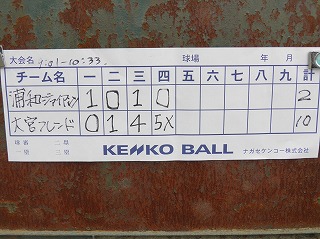 大会名 9:01-10:33. 球場 年 月
チーム名 一 二 三 四 五 六 七 八 九 計
浦和 1 0 1 0 2
大宮フレンド 0 1 4 5X 10
球審 二塁
一塁 三塁
KENKO BALL ナガセケンコー株式会社